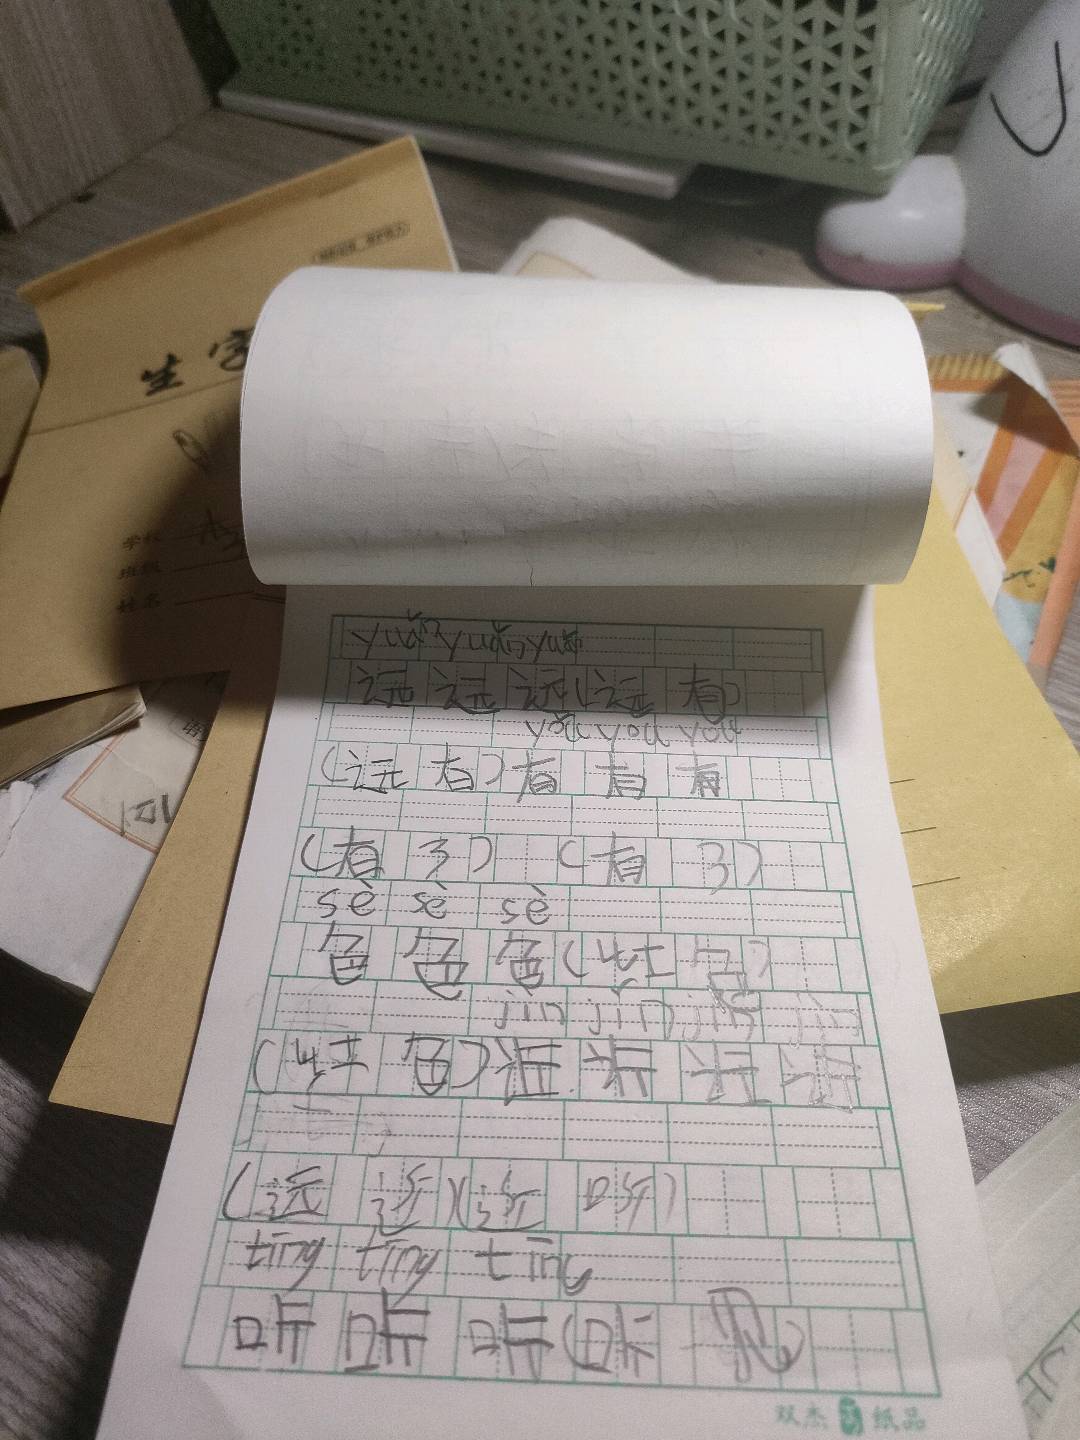 生字
学校
班级
姓名
yuǎn yuǎn yuǎn
远 远 远 (远 有)
yǒu yǒu yǒu
(远 有) 有 有 有
(有 了) (有 了)
sè sè sè
色 色 色 (红 色)
jìn jìn jìn jìn
(红 色) 近 近 近 近
(远 近) (近 听)
tīng tīng tīng
听 听 听 (听 见)
双杰 纸品